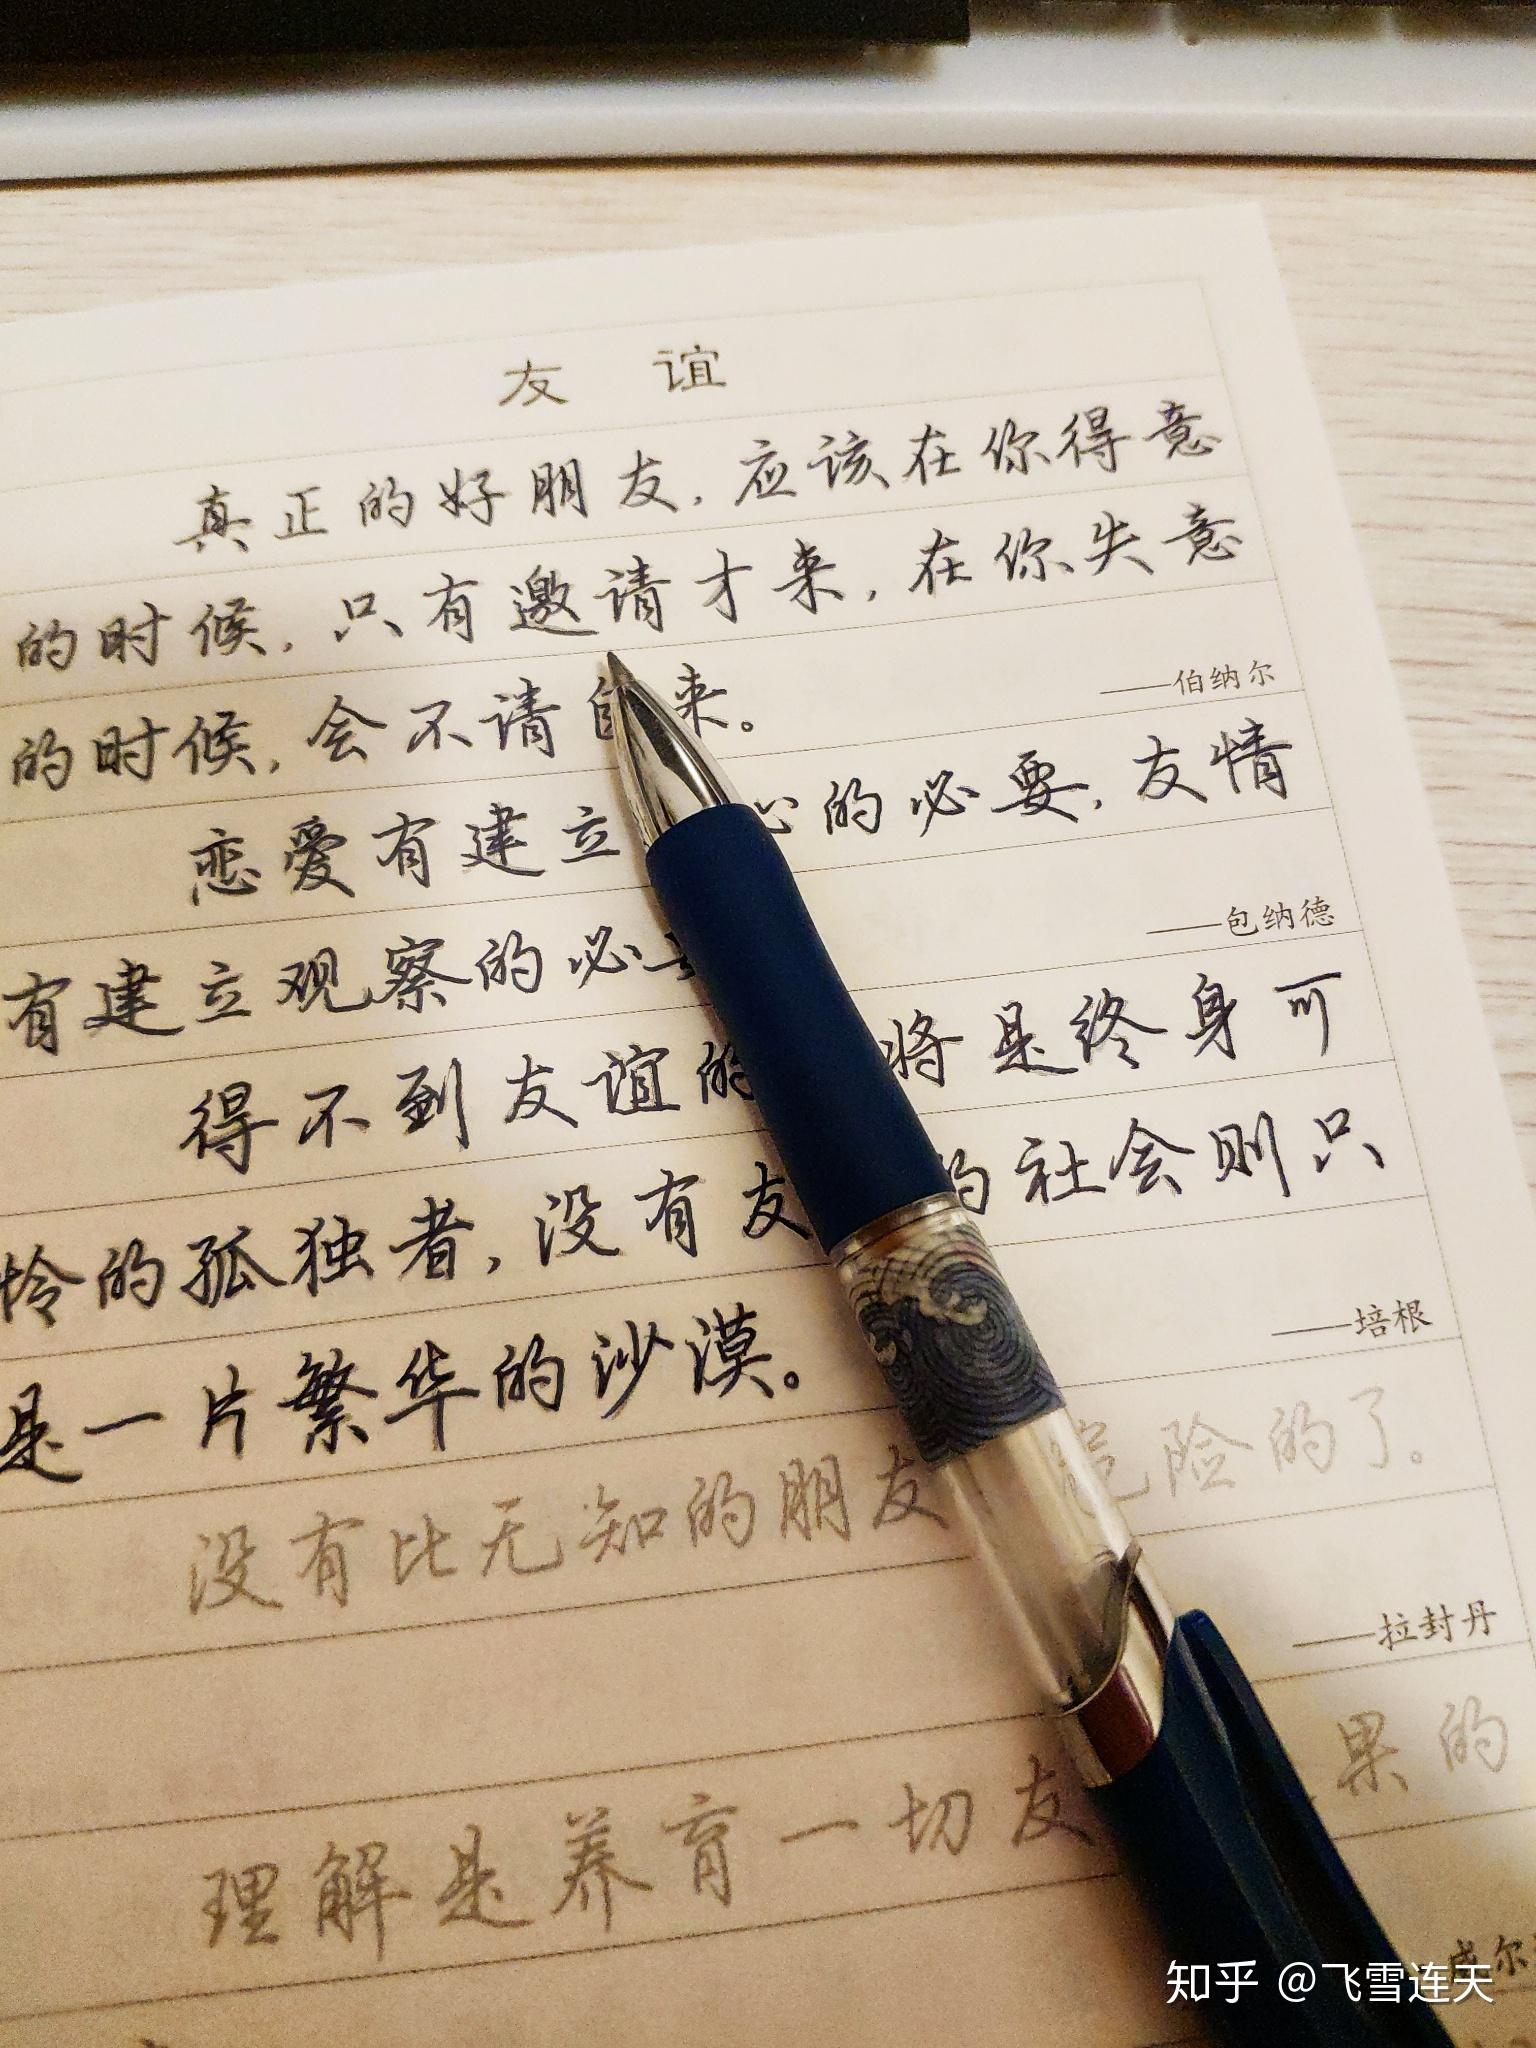 友谊
真正的好朋友，应该在你得意
的时候，只有邀请才来，在你失意
的时候，会不请自来。
——伯纳尔
恋爱有建立 心的必要，友情
有建立观察的必要
——包纳德
得不到友谊的 将是终身可
怜的孤独者，没有友 的社会则只
是一片繁华的沙漠。
——培根
没有比无知的朋友 危险的了。
——拉封丹
理解是养育一切友 果的
威尔
知乎 @飞雪连天